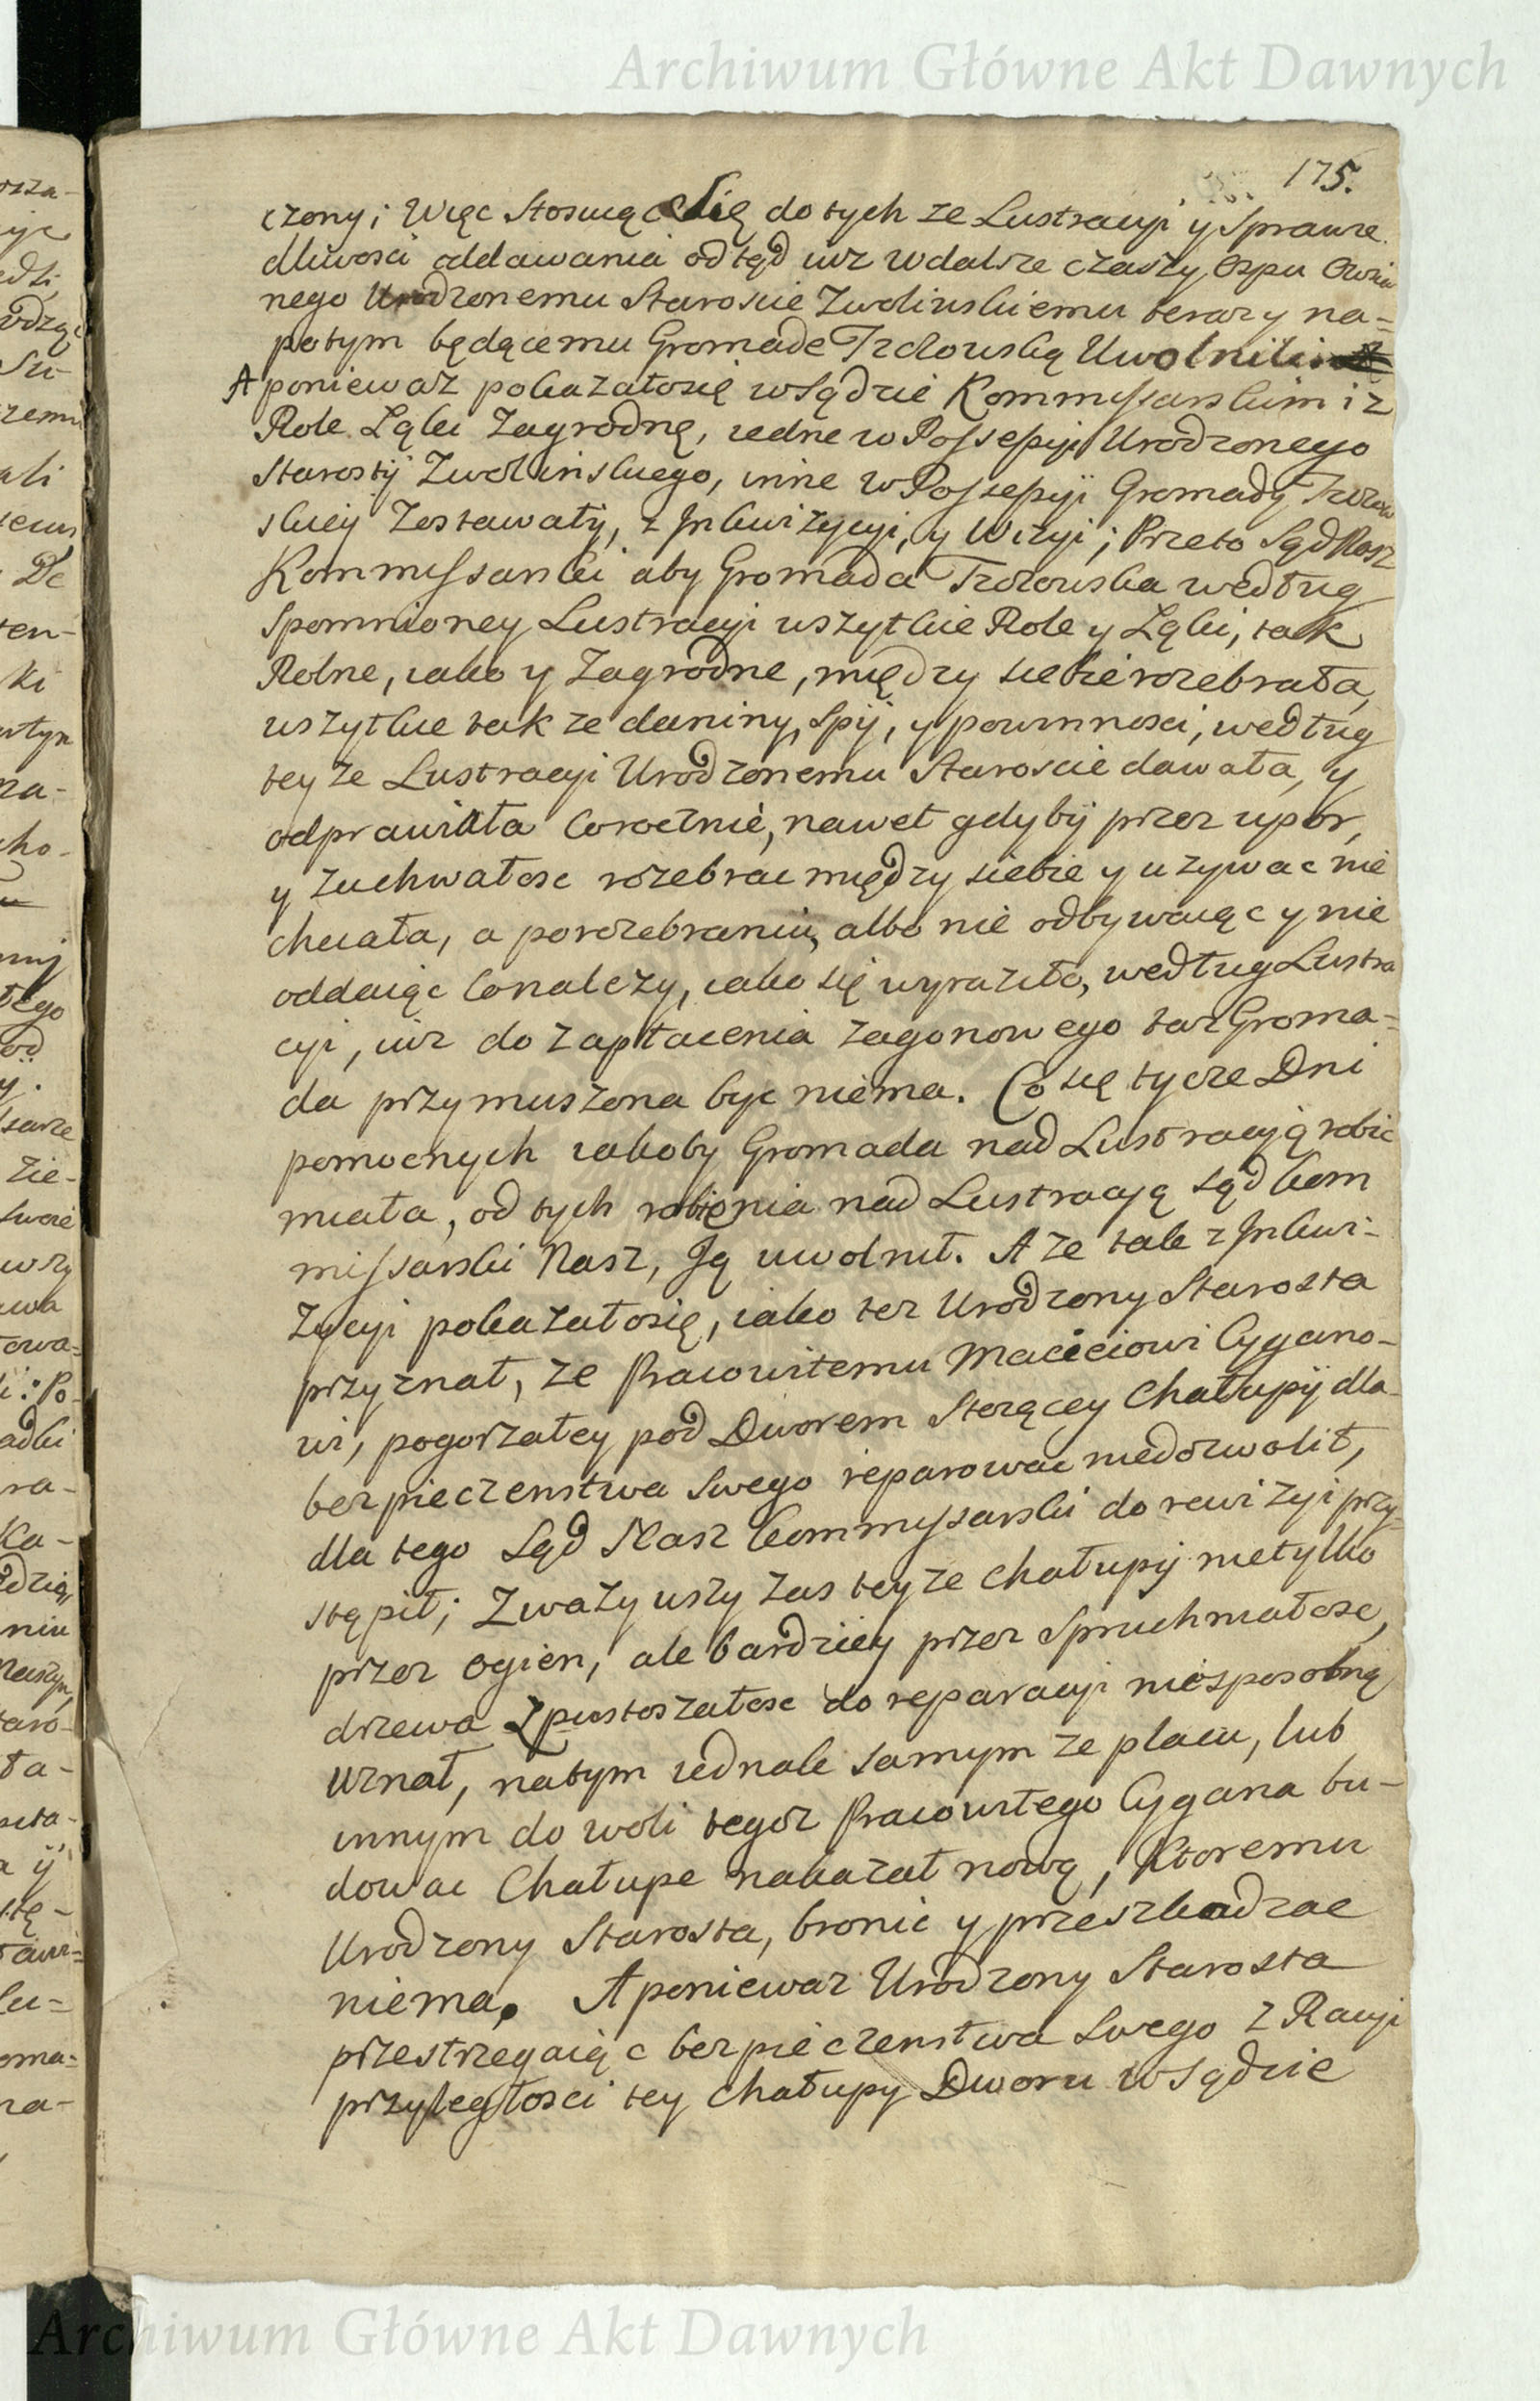 Archiwum Główne Akt Dawnych
175.
czony; Więc Stosuiąc Się do tych ze Lustracyi y Sprawie
dliwosci oddawania odtąd iuz w dalsze czasy, Ospu Owsia
nego Urodzonemu Staroscie Zwolinskiemu teraz y na=
potym będącemu Gromade Trzcowską Uwolnili.
A poniewaz pokazałosię w Sądzie Kommissarskim iz
Role Łąki Zagrodnę, iedne w Possessyi Urodzonego
Starosty Zwolinskiego, inne w Possessyi Gromady
skiey Zostawały, z Inkwizycyi, y Wizyi; Przeto Sąd Nasz
Kommissarski aby Gromada według
Spomnioney Lustracyi wszytkie Role y Łąki, tak
Rolne, iako y Zagrodne, między siebie rozebrała,
wszytkie tak ze daniny, Spij, y powinnosci, według
tey ze Lustracyi Urodzonemu Staroscie dawała, y
odprawiała Corocznie, nawet gdyby przez upor,
y Zuchwałosc rozebrac między siebie y uzywac nie
chciała, a porozebraniu, albo nie odbywaiąc y nie
oddaiąc Conalezy, iako się wyraziło, według Lustra
cyi, iuz do zapłacenia zagonowego taz Groma=
da przymuszona byc niema. Co się tycze Dni
pomocnych iakoby Gromada nad Lustracyią robic
miała, od tych robienia nad Lustracyą Sąd kom
missarski Nasz, Ią uwolnił. A ze tak z Inkwi-
zycyi pokazałosię, iako tez Urodzony Starosta
przyznał, ze Pracowitemu Macieiowi Cygano-
wi, pogorzałey pod Dworem Stoiącey Chałupy dla
bezpieczenstwa Swego reparowac niedozwolił,
dla tego Sąd Nasz kommyssarski do rewizyi przy=
stąpił; Zwazywszy zas teyze chałupy nietylko
przez ogien, ale bardziey przez Spruchniałosc,
drzewa Zpustoszałosc do reparacyi niesposobną
Uznał, natym iednak samym ze placu, lub
innym do woli tegoz Pracowitego Cygana bu-
dowac Chałupe nakazał nową, Ktoremu
Urodzony Starosta, bronic y przeszkadzac
niema. A poniewaz Urodzony Starosta
przestrzegaiąc bezpieczenstwa Swego z Racyi
przyległosci tey chałupy Dworu w Sądzie
Archiwum Główne Akt Dawnych